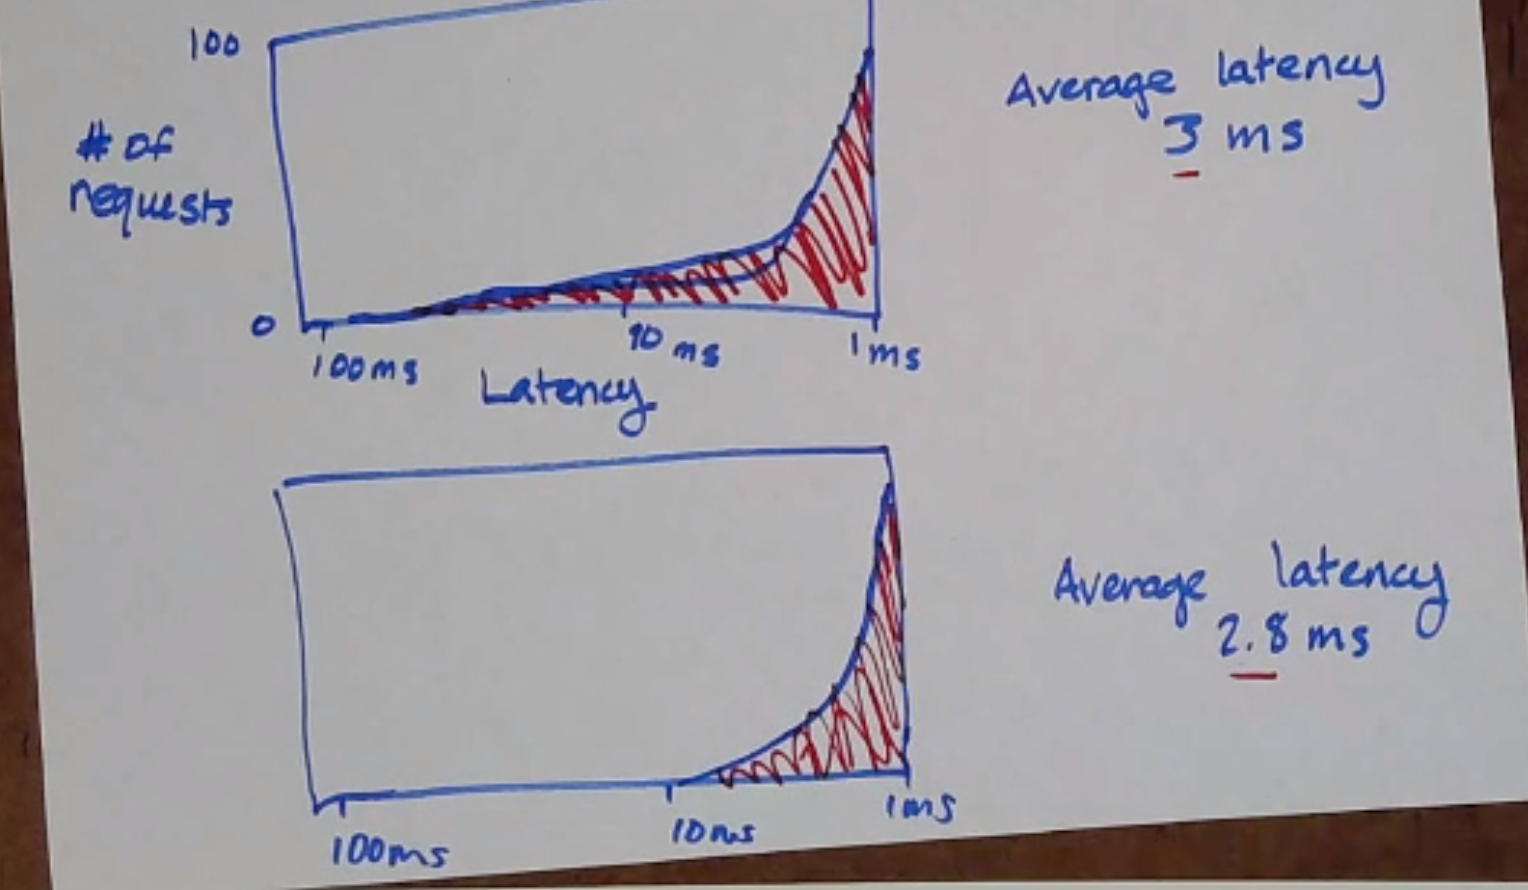 100
# of
requests
0
100ms
10 ms
1ms
Latency
Average latency
3 ms
100ms
10ms
1ms
Average latency
2.8 ms